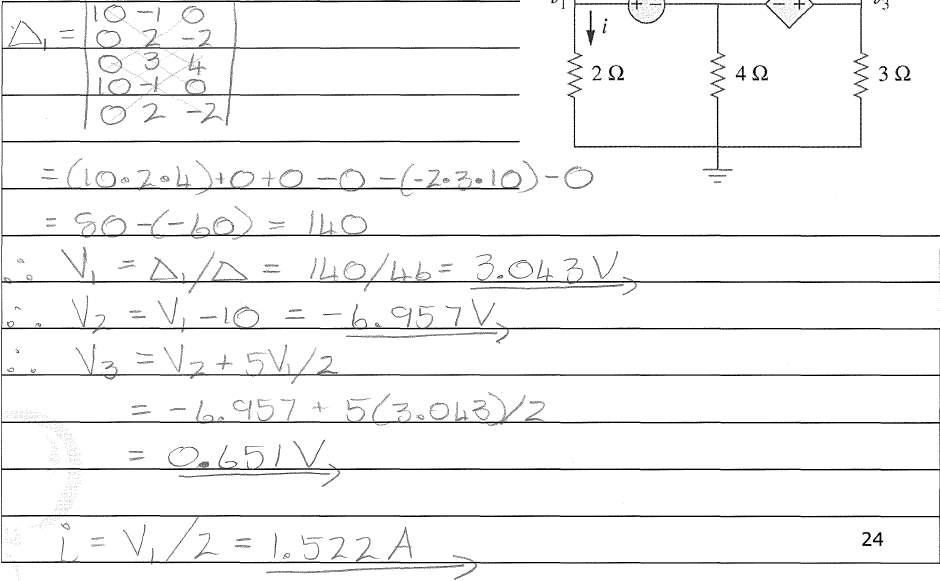 Δ₁ = | 10 -1 0 |
| 0 2 -2 |
| 0 3 4 |
10 -1 0
0 2 -2
= (10·2·4)+0+0-0-(-2·3·10)-0
= 80-(-60) = 140
∴ V₁ = Δ₁/Δ = 140/46 = 3.043V
∴ V₂ = V₁-10 = -6.957V
∴ V₃ = V₂ + 5V₁/2
= -6.957 + 5(3.043)/2
= 0.651V
i = V₁/2 = 1.522A
+ -
- +
v₃
i
2 Ω
4 Ω
3 Ω
24